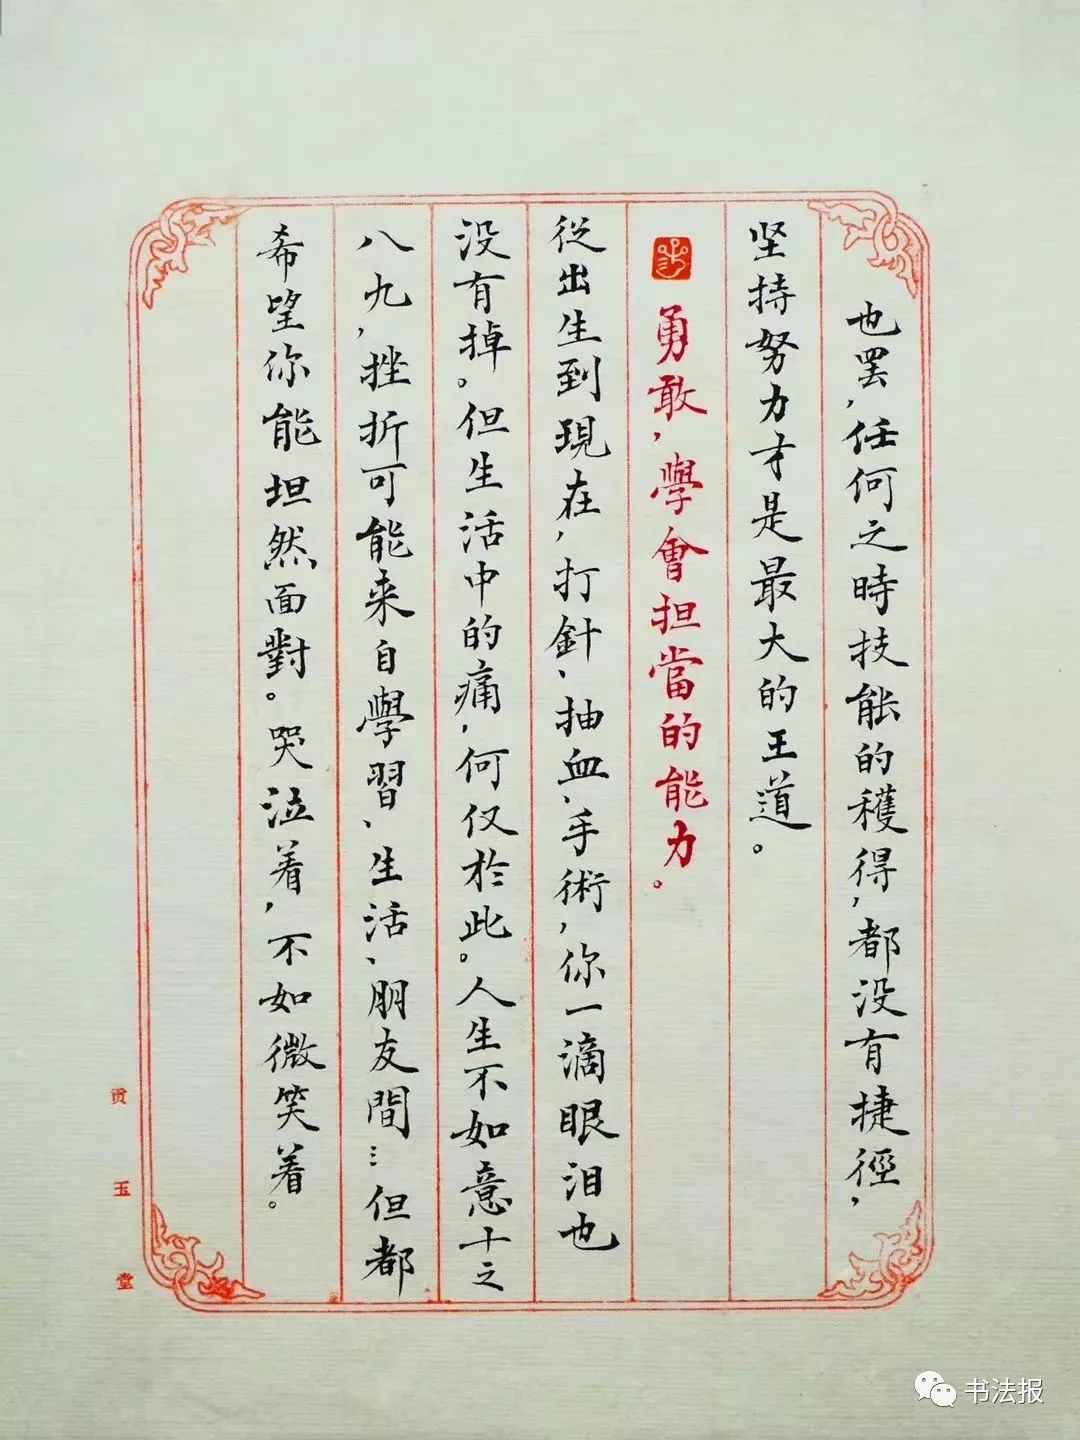 也罢,任何之時技能的穫得,都没有捷徑,
坚持努力才是最大的王道。
勇敢,學會担當的能力。
從出生到現在,打針、抽血、手術,你一滴眼泪也
没有掉。但生活中的痛,何仅於此。人生不如意十之
八九,挫折可能来自學習、生活、朋友間…但都
希望你能坦然面對。哭泣着,不如微笑着。
贡玉堂
书法报